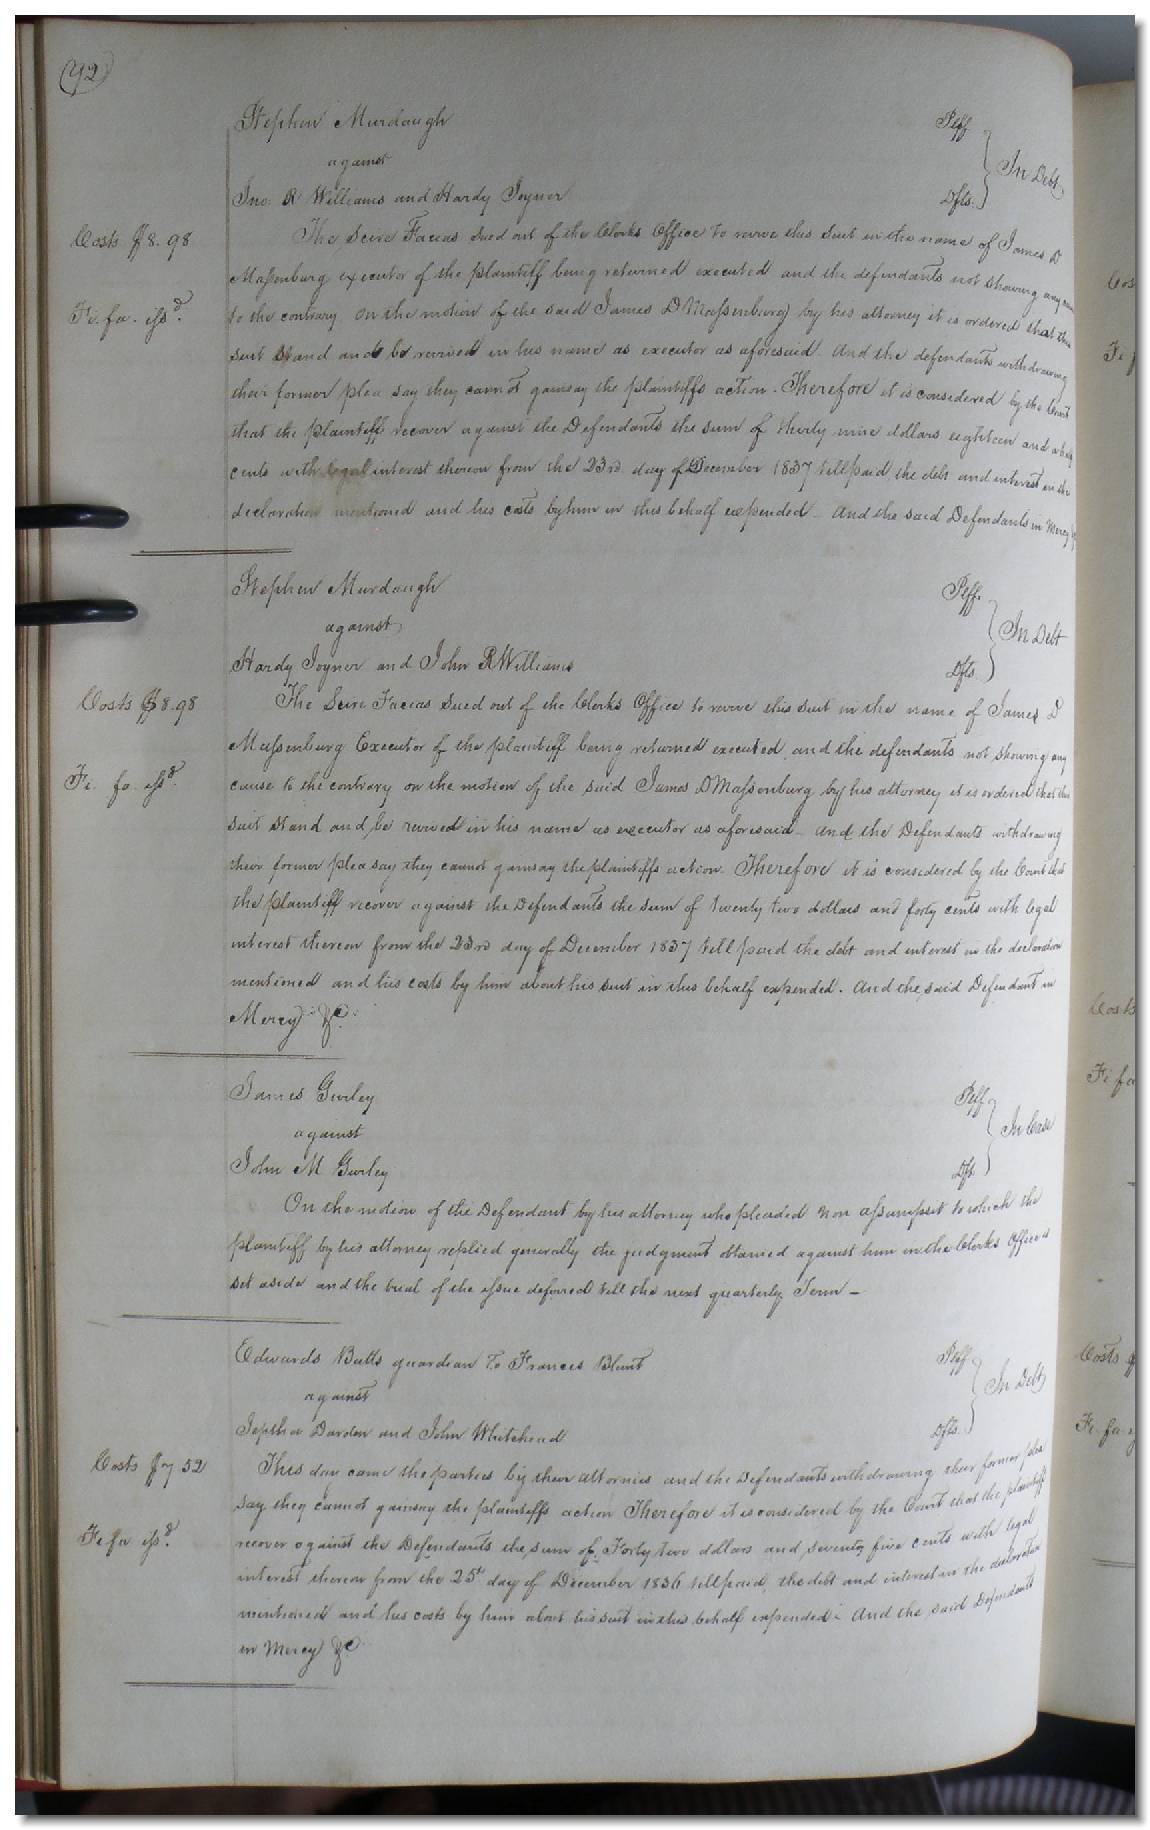 (42)
Stephen Murdaugh Plff
against In Debt
Jno. R Williams and Hardy Joyner Dfts.
Costs $8.98
The Scire Facias sued out of the Clerks Office to revive this suit in the name of James D
Massenburg executor of the plaintiff being returned executed and the defendants not showing any
Fi. fa. issd.
to the contrary on the motion of the said James D Massenburg by his attorney it is ordered that this
suit stand and be revived in his name as executor as aforesaid. And the defendants withdrawing
their former plea say they cannot gainsay the plaintiffs action. Therefore it is considered by the Court
that the plaintiff recover against the Defendants the sum of thirty nine dollars eighteen and a half
cents with legal interest thereon from the 23rd day of December 1837 till paid the debt and interest in the
declaration mentioned and his costs by him in this behalf expended - And the said Defendants in Mercy &c
Stephen Murdaugh Plff.
against In Debt
Hardy Joyner and John R Williams Dfts.
Costs $8.98
The Scire Facias sued out of the Clerks Office to revive this suit in the name of James D
Massenburg Executor of the plaintiff being returned executed, and the defendants not showing any
Fi. fa. issd.
cause to the contrary on the motion of the said James D Massenburg by his attorney it is ordered that this
suit stand and be revived in his name as executor as aforesaid - And the Defendants withdrawing
their former plea say they cannot gainsay the plaintiffs action. Therefore it is considered by the Court that
the plaintiff recover against the Defendants the sum of twenty two dollars and forty cents with legal
interest thereon from the 23rd day of December 1837 till paid the debt and interest in the declaration
mentioned and his costs by him about his suit in this behalf expended. And the said Defendant in
Mercy &c.
James Gurley Plff
against In Case
John M Gurley Dft.
On the motion of the Defendant by his attorney who pleaded non assumpsit to which the
plaintiff by his attorney replied generally the judgment obtained against him in the Clerks Office is
set aside and the trial of the issue deferred till the next quarterly Term -
Edwards Butts guardian to Frances Blunt Plff
against In Debt
Jeptha Darden and John Whitehead Dfts.
Costs $7.52
This day came the parties by their attornies and the Defendants withdrawing their former plea
say they cannot gainsay the plaintiffs action Therefore it is considered by the Court that the plaintiff
Fi fa issd.
recover against the Defendants the sum of Forty two dollars and seventy five cents with legal
interest thereon from the 25th day of December 1836 till paid, the debt and interest in the declaration
mentioned and his costs by him about his suit in this behalf expended - And the said Defendants
in Mercy &c
Costs
Fi fa
Costs $
Fi. fa.